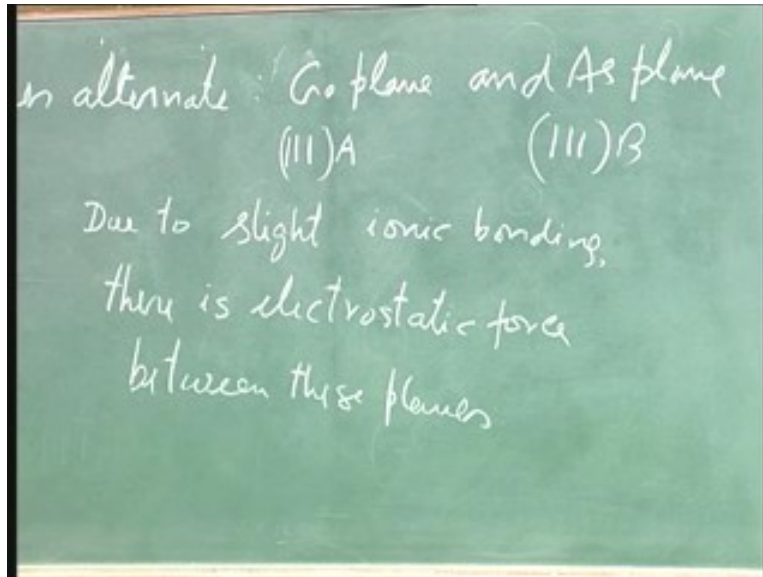 in alternate : Ga plane and As plane
(111)A (111)B
Due to slight ionic bonding,
there is electrostatic force
between these planes